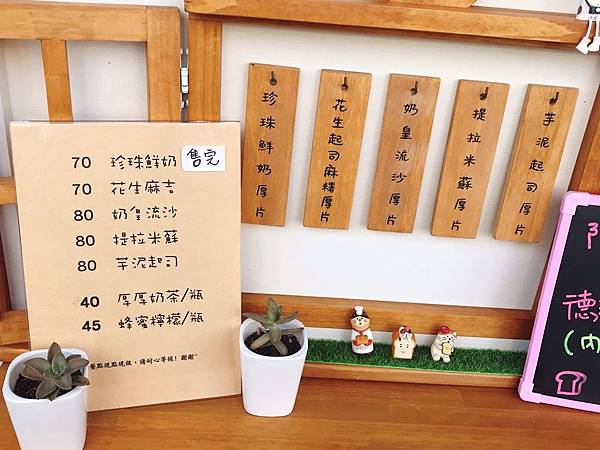 70 珍珠鮮奶 售完
70 花生麻吉
80 奶皇流沙
80 提拉米蘇
80 芋泥起司
40 厚厚奶茶/瓶
45 蜂蜜檸檬/瓶
餐點現點現做，請耐心等候！謝謝"
珍珠鮮奶厚片
花生起司麻糬厚片
奶皇流沙厚片
提拉米蘇厚片
芋泥起司厚片
德
(內